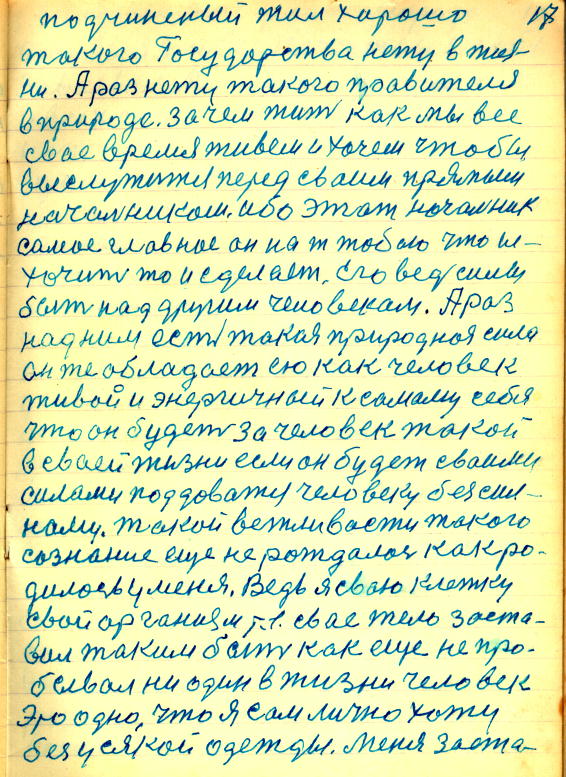 подчиненый жил хорошо 17
такого Государства нету в жиз
ни. А раз нету такого правителя
в природе. Зачем жит как мы все
свае время живем и хочем чтобы
выслужится перед сваим прямым
началником. ибо этат началник
самое главное он на т тобою что и-
хочит то и сделает. его вед силы
быт над другим человекам. А раз
над ним ест такая природная сила
он же обладает ею как человек
живой и энергичный к самаму себя
что он будет за человек такой
в сваей жизни если он будет сваими
силами поддоватся человеку безсил-
наму. такой вежливасти такого
сознание еще не рождалос как ро-
дилось у меня. Ведь я сваю клетку
свой арганизм т.е. свае тело заста-
вил таким быт как еще не про-
бывал ни один в жизни человек
Это одно, что я сам лично хожу
без усякой одежды. Меня заста-